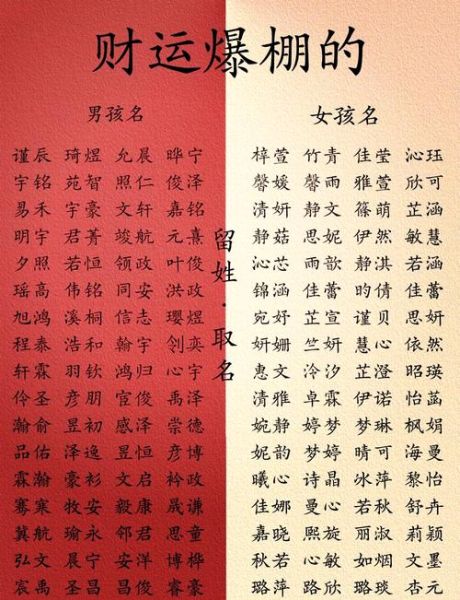 财运爆棚的
男孩名 女孩名
谨辰 琦煜 允晨 晔宁 梓萱 竹青 佳莹 沁珏
宇铭 苑智 照仁 俊泽 馨媛 馨雨 雅萱 欣可
易禾 宇豪 文轩 嘉铭 清妍 静文 篠萌 芷涵
明宇 君菁 竣航 元熹 静菇 思妮 伊然 敏慧
夕照 若恒 领政 叶俊 沁芯 雨歆 静淇 若涵
瑶高 伟铭 同安 洪政 锦涵 佳蕾 昀倩 佳蕾
旭鸿 溪桐 信志 璎煜 宛妤 芷宣 谨贝 思妍
程泰 浩和 翰宇 刽奕 妍姗 竺妍 慧心 依然
轩霖 羽钦 鸿归 心宇 惠文 泠汐 芷瑟 昭瑛
伶圣 彦朋 宣俊 禹泽 清雅 卓霖 伊诺 怡菡
瀚俞 昱初 感泽 崇德 婉静 婷梦 梦琳 枫娟
品佑 泽逸 昱恒 彦博 妮韵 梦婷 晴可 海曼
霖瀚 豪衫 文启 衿政 曦心 诗晶 冰萍 黎怡
骞寒 牧安 毅康 晟谦 佳娜 曼心 若秋 舒卉
冀航 瑜永 邻君 思童 嘉晓 熙旋 丽淑 莉颖
弘文 晨宁 安洋 博桦 秋若 心敏 如烟 文墨
宸禹 圣昌 昌俊 睿豪 璐萍 路欣 璐琰 杏元
留姓·取名